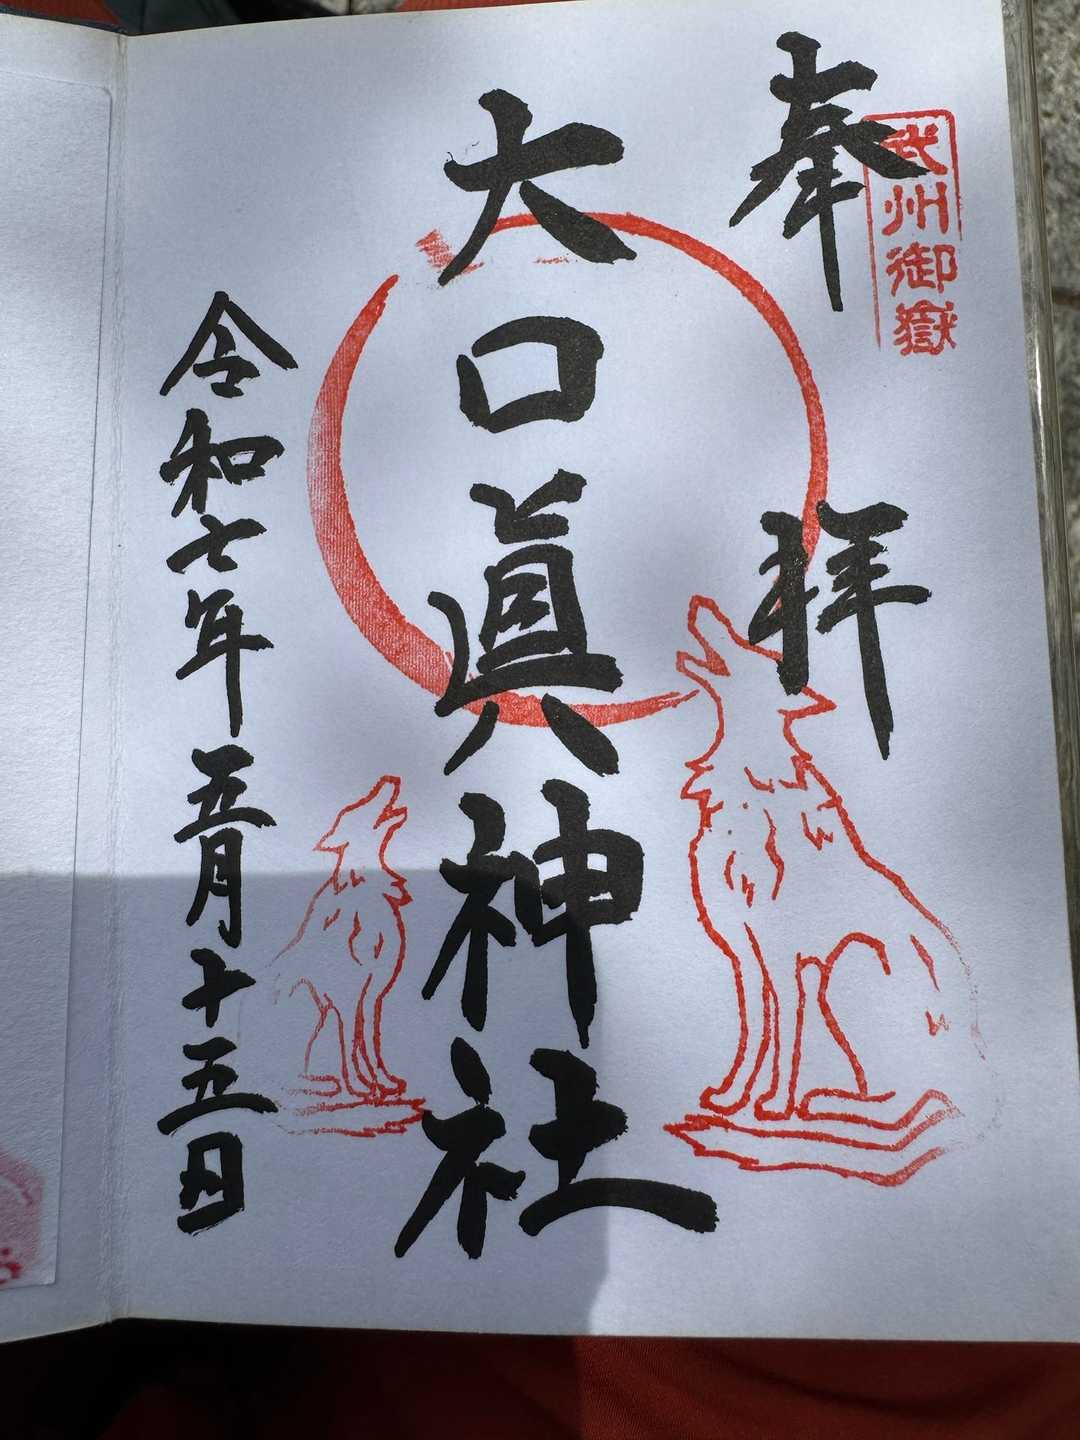 奉拝
武州御嶽
大口眞神社
令和七年五月十五日